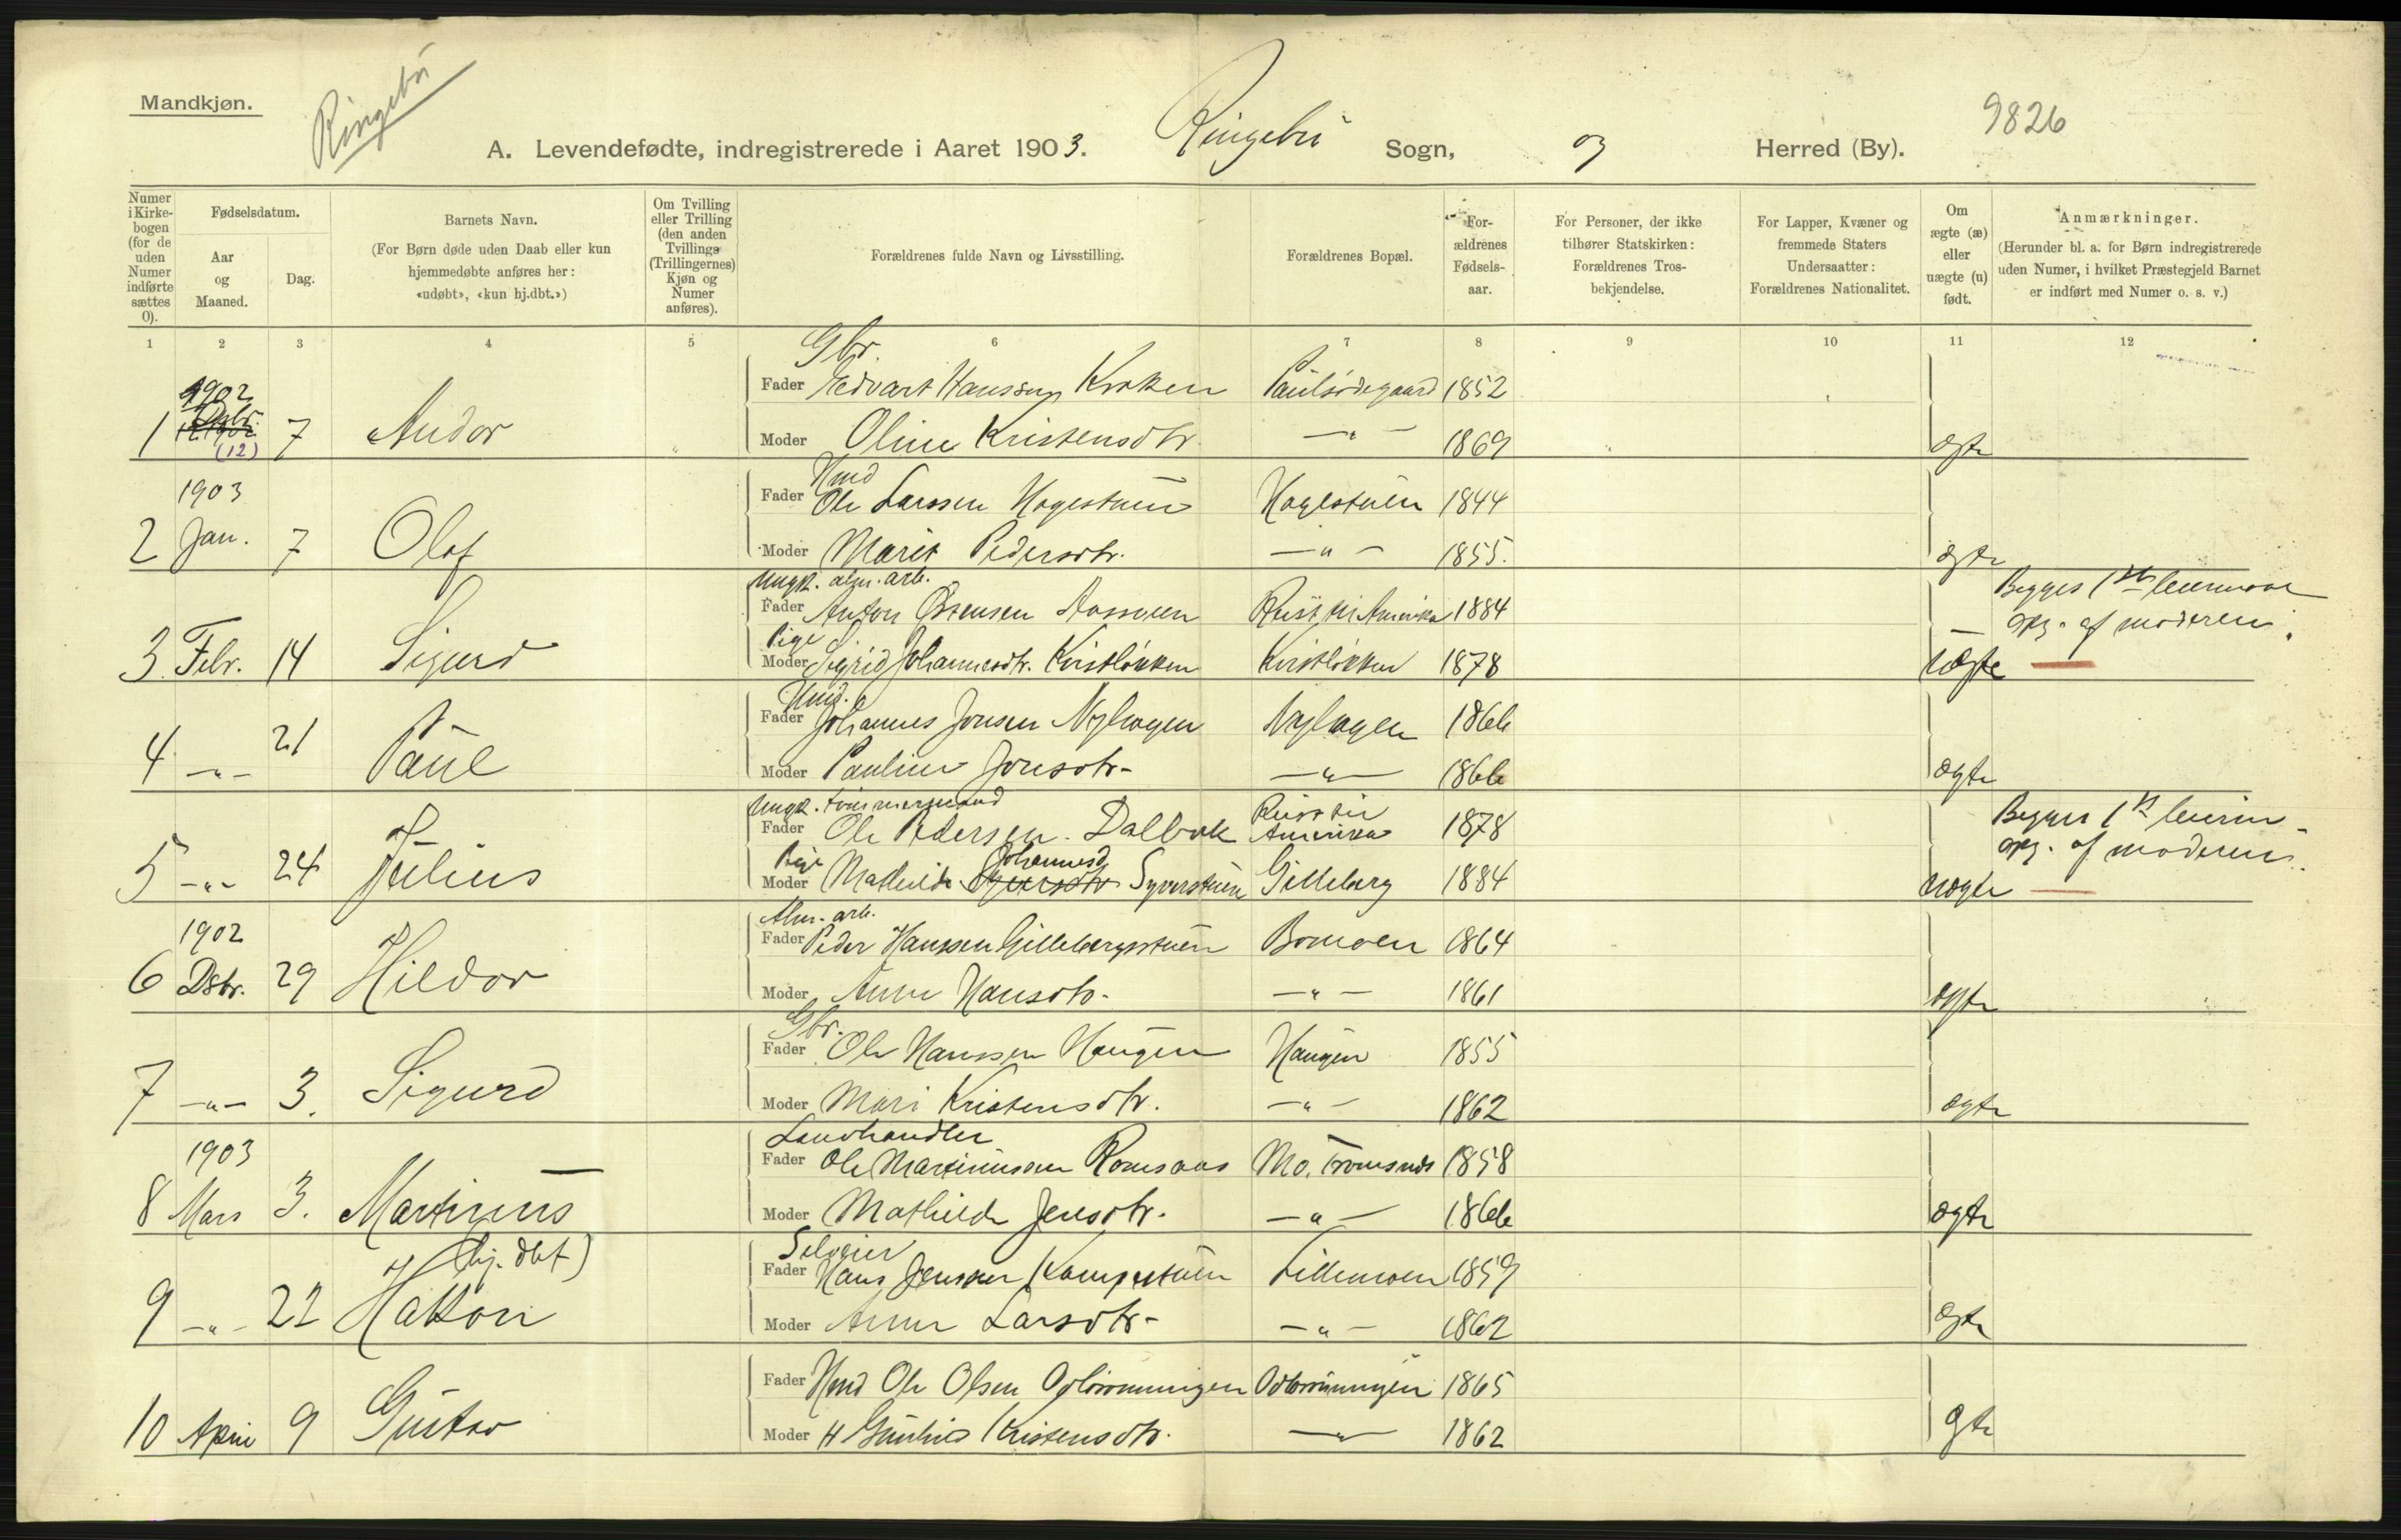 Mandkjøn.
Ringebø
9826
A. Levendefødte, indregistrerede i Aaret 1903. Ringebu Sogn, og Herred (By).
Numer i Kirkebogen (for de uden Numer indførte sættes 0).
Fødselsdatum.
Aar og Maaned.
Dag.
Barnets Navn.
(For Børn døde uden Daab eller kun hjemmedøbte anføres her: «udøbt», «kun hj.dbt.»)
Om Tvilling eller Trilling (den anden Tvillings (Trillingernes) Kjøn og Numer anføres).
Forældrenes fulde Navn og Livsstilling.
Forældrenes Bopæl.
Forældrenes Fødselsaar.
For Personer, der ikke tilhører Statskirken: Forældrenes Trosbekjendelse.
For Lapper, Kvæner og fremmede Staters Undersaatter: Forældrenes Nationalitet.
Om ægte (æ) eller uægte (u) født.
Anmærkninger.
(Herunder bl. a. for Børn indregistrerede uden Numer, i hvilket Præstegjeld Barnet er indført med Numer o. s. v.)
1 2 3 4 5 6 7 8 9 10 11 12
Gbr.
1902 Fader Edvart Hanssen Kroken Paulsødegaard 1852
Dsbr.
1 (12) 7 Andor Moder Oline Kristensdtr. —"— 1869 ægte
Hmd
1903 Fader Ole Larssen Hagestuen Hagestuen 1844
2 Jan. 7 Olaf Moder Marit Pedersdtr. —"— 1855. ægte
Ungk. alm. arb. Begges 1ste leiermaal
Fader Anton Østensen Aasmoen Reist til Amerika 1884 opg. af moderen.
Pige
3. Febr. 14 Sigurd Moder Sigrid Johannesdtr. Kvistløkken Kvistløkken 1878 uægte —
Hmd.
Fader Johannes Jonsen Nyhagen Nyhagen 1866
4 —"— 21 Paul Moder Pauline Jonsdtr. —"— 1866 ægte
Ungk. tømmermand Reist til Begges 1ste leierm.
Fader Ole Pedersen Dalbak Amerika 1878 opg. af moderen.
Pige Johannesd
5 —"— 24 Julius Moder Mathilde Syverstuen Gilleberg 1884 uægte —
Alm. arb.
1902 Fader Peder Hanssen Gillebergstuen Bomoen 1864
6 Dsbr. 29 Hildor Moder Anne Hansdtr. —"— 1861 ægte
Gbr.
Fader Ole Hanssen Haugen Haugen 1855
7 —"— 3. Sigurd Moder Mari Kristensdtr. —"— 1862 ægte
Landhandler
1903 Fader Ole Martinussen Romsaas Mo. Tromsnes 1858
8 Mars 3. Martinus Moder Mathilde Jensdtr. —"— 1866 ægte
(hj. dbt) Selveier
Fader Hans Jenssen Kampestuen Lillemoen 1859
9 —"— 22 Hakon Moder Anne Larsdtr. —"— 1862 ægte
Fader Hmd Ole Olsen Odbrønningen Odbrønningen 1865
10 April 9 Gustav Moder H Gunhild Kristensdtr. —"— 1862 gte